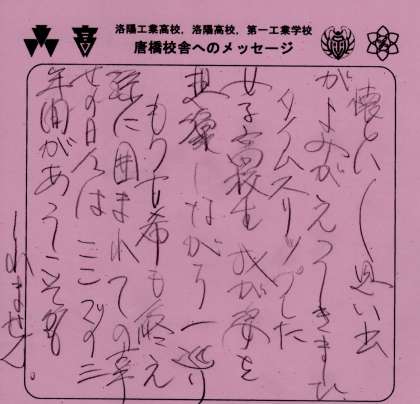 洛陽工業高校，洛陽高校，第一工業学校
唐橋校舎へのメッセージ
懐かしい思い出
がよみがえってきました
タイムスリップした
女子高校生 我が姿を
想像しながら一巡り
もう古希も迎え
孫に囲まれての幸
せの日々は ここでの三
年間があったからこそかも
しれません。